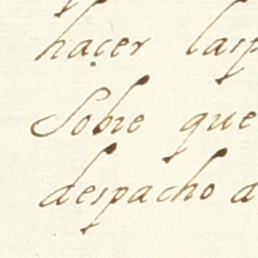 haçer las
Sobre que
despacho d